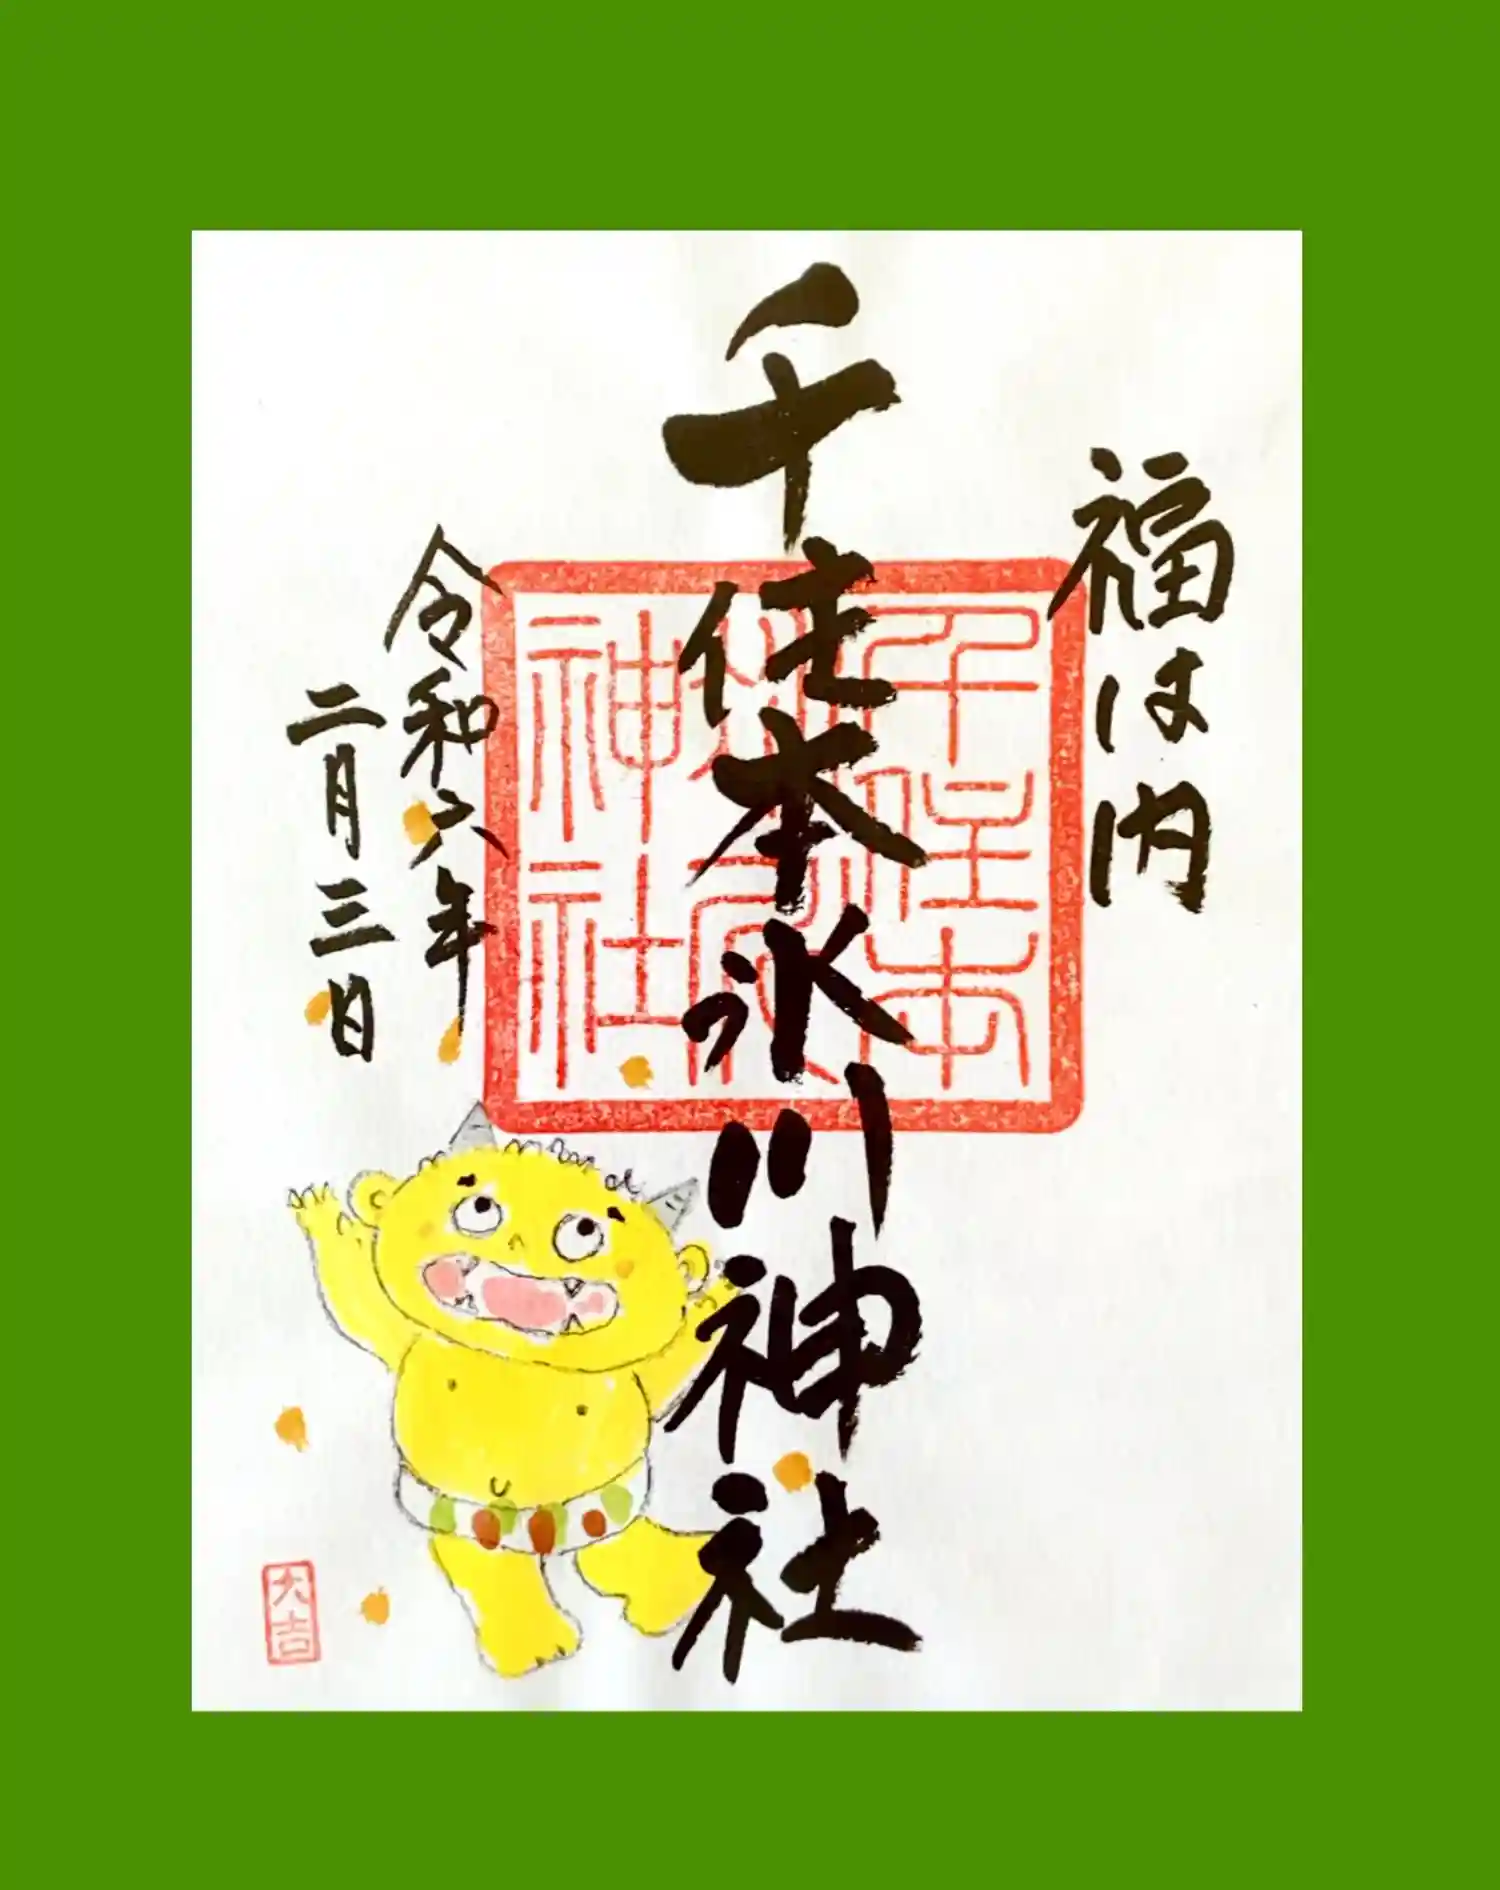 福は内
千住本氷川神社
千住本
氷川
神社
令和六年
二月三日
大吉